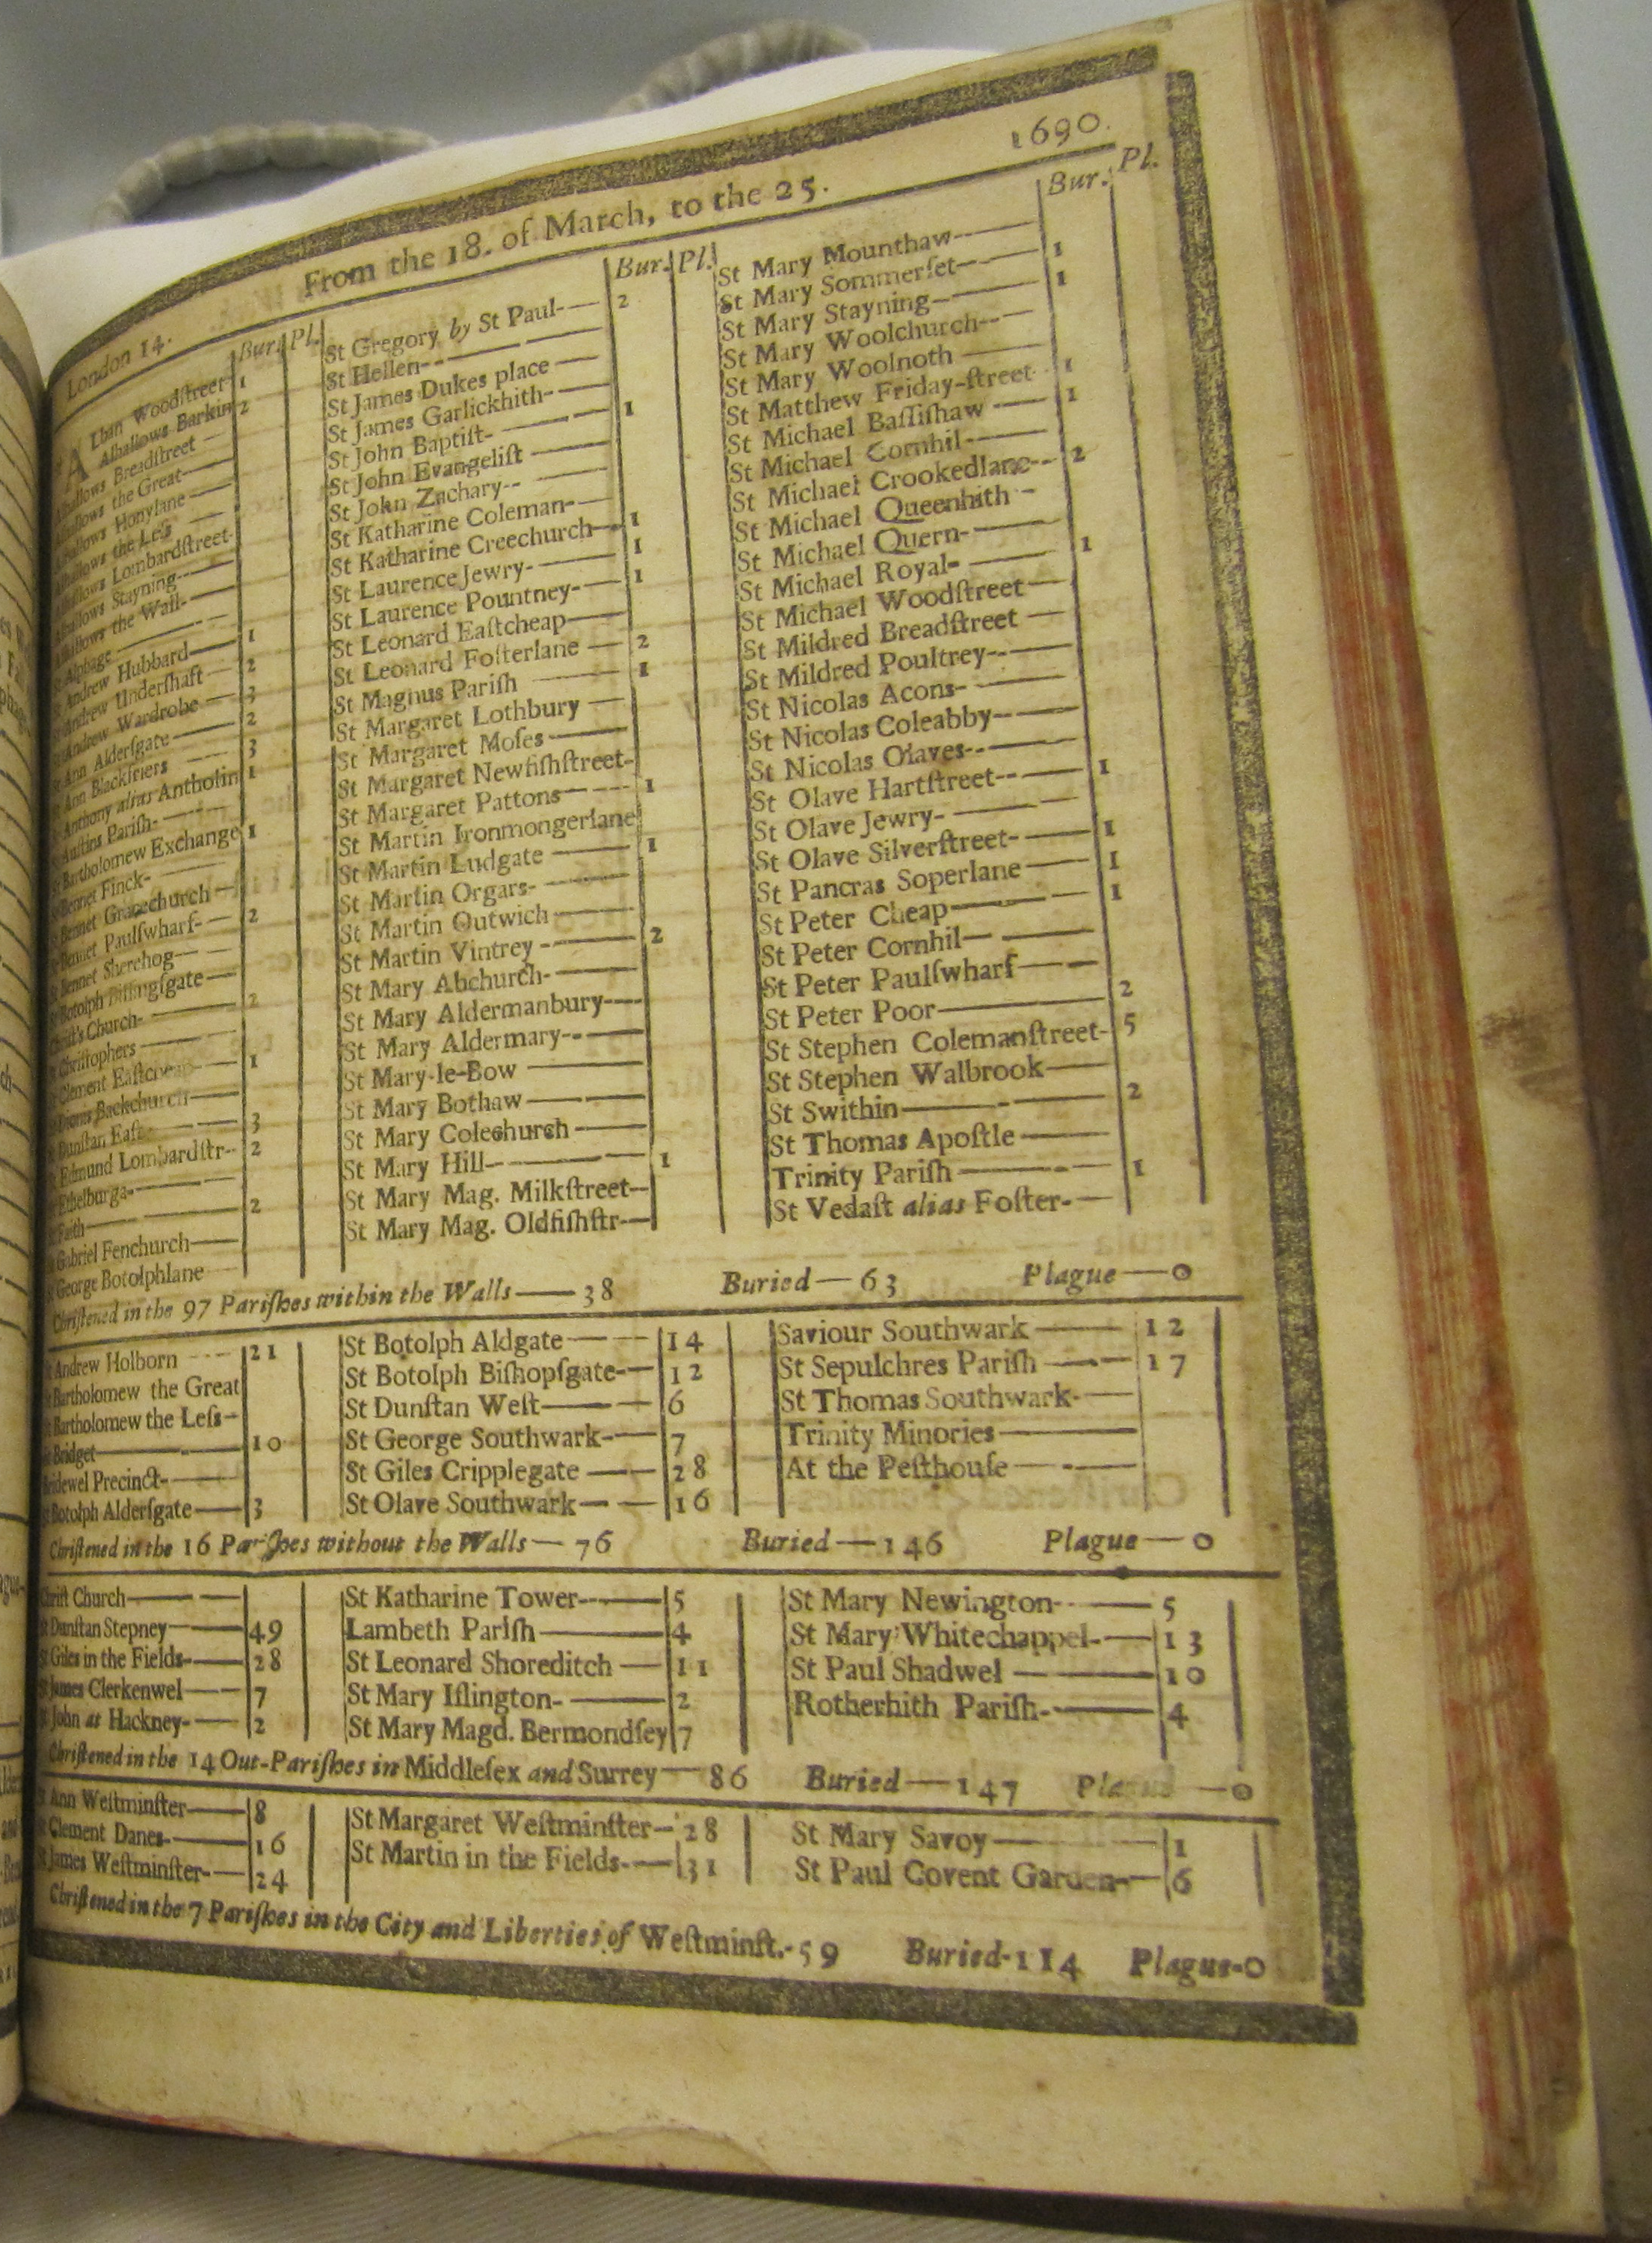 1690.
London 14. From the 18. of March, to the 25.
Bur. Pl.
Lban Woodſtreet 1
Alhallows Barkin 2
Breadſtreet
the Great
Honylane
the Leſs
Lombardſtreet
Stayning
the Wall
Alphage
Andrew Hubbard 1
Andrew Underſhaft 2
Andrew Wardrobe 3
Ann Alderſgate 2
Ann Blackfriers 3
Anthony alias Antholin 1
Auſtins Pariſh
Bartholomew Exchange 1
Bennet Finck
Bennet Gracechurch
Bennet Paulſwharf 2
Bennet Sherehog
Botolph Billingſgate
Chriſt's Church 2
Chriſtophers
Clement Eaſtcheap 1
Dionis Backchurch
Dunſtan Eaſt 3
Edmund Lombardſtr 2
Ethelburga
Faith 2
Gabriel Fenchurch
George Botolphlane
Bur. Pl.
St Gregory by St Paul 2
St Hellen
St James Dukes place
St James Garlickhith
St John Baptiſt 1
St John Evangeliſt
St John Zachary
St Katharine Coleman
St Katharine Creechurch 1
St Laurence Jewry 1
St Laurence Pountney 1
St Leonard Eaſtcheap
St Leonard Foſterlane 2
St Magnus Pariſh 1
St Margaret Lothbury
St Margaret Moſes
St Margaret Newfiſhſtreet
St Margaret Pattons 1
St Martin Ironmongerlane
St Martin Ludgate 1
St Martin Orgars
St Martin Outwich
St Martin Vintrey 2
St Mary Abchurch
St Mary Aldermanbury
St Mary Aldermary
St Mary-le-Bow
St Mary Bothaw
St Mary Colechurch
St Mary Hill 1
St Mary Mag. Milkſtreet
St Mary Mag. Oldfiſhſtr
Bur. Pl.
St Mary Mounthaw
St Mary Sommerſet 1
St Mary Stayning 1
St Mary Woolchurch
St Mary Woolnoth
St Matthew Friday-ſtreet 1
St Michael Baſſiſhaw 1
St Michael Cornhil
St Michael Crookedlane 2
St Michael Queenhith
St Michael Quern
St Michael Royal 1
St Michael Woodſtreet
St Mildred Breadſtreet
St Mildred Poultrey
St Nicolas Acons
St Nicolas Coleabby
St Nicolas Olaves
St Olave Hartſtreet 1
St Olave Jewry
St Olave Silverſtreet 1
St Pancras Soperlane 1
St Peter Cheap 1
St Peter Cornhil
St Peter Paulſwharf
St Peter Poor 2
St Stephen Colemanſtreet 5
St Stephen Walbrook
St Swithin 2
St Thomas Apoſtle
Trinity Pariſh 1
St Vedaſt alias Foſter
Chriſtened in the 97 Pariſhes within the Walls — 38 Buried — 63 Plague — 0
St Andrew Holborn 21
St Bartholomew the Great
St Bartholomew the Leſs
St Bridget 10
Bridewel Precinct
St Botolph Alderſgate 3
St Botolph Aldgate 14
St Botolph Biſhopſgate 12
St Dunſtan Weſt 6
St George Southwark 7
St Giles Cripplegate 28
St Olave Southwark 16
Saviour Southwark 12
St Sepulchres Pariſh 17
St Thomas Southwark
Trinity Minories
At the Peſthouſe
Chriſtened in the 16 Pariſhes without the Walls — 76 Buried — 146 Plague — 0
Chriſt Church
St Dunſtan Stepney 49
St Giles in the Fields 28
St James Clerkenwel 7
St John at Hackney 2
St Katharine Tower 5
Lambeth Pariſh 4
St Leonard Shoreditch 11
St Mary Iſlington 2
St Mary Magd. Bermondſey 7
St Mary Newington 5
St Mary Whitechappel 13
St Paul Shadwel 10
Rotherhith Pariſh 4
Chriſtened in the 14 Out-Pariſhes in Middleſex and Surrey — 86 Buried — 147 Plague — 0
St Ann Weſtminſter 8
St Clement Danes 16
St James Weſtminſter 24
St Margaret Weſtminſter 28
St Martin in the Fields 31
St Mary Savoy 1
St Paul Covent Garden 6
Chriſtened in the 7 Pariſhes in the City and Liberties of Weſtminſt.-59 Buried-114 Plague-0